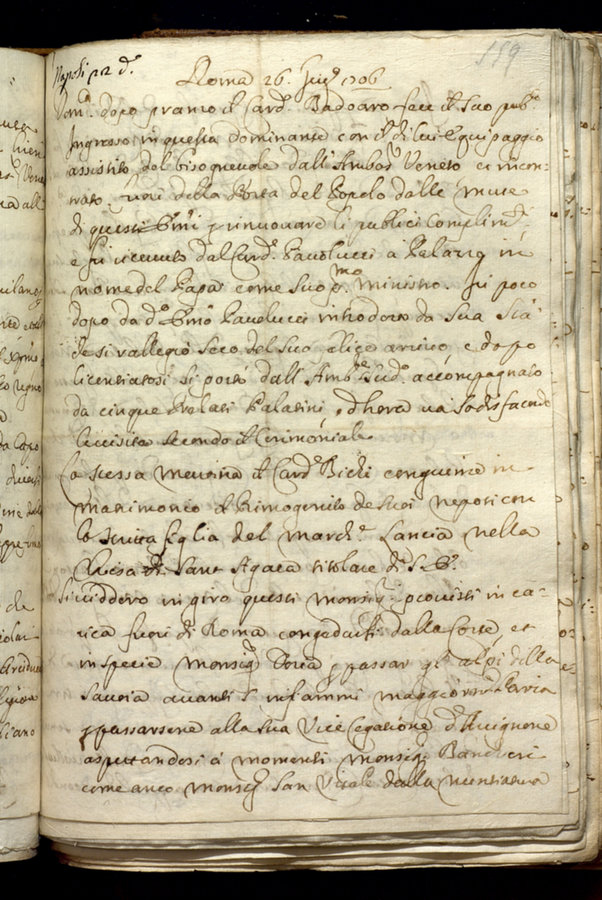 159
Napoli p.2 d.°
Roma 26. Giug.° 1706
Dom.ca dopo pranzo il Card. Badoaro fece il suo pub.co
Ingresso in questa dominante con il di lui Equipaggio
assistito dal bisognevole dall'Ambas.r Veneto ed incon-
trato fuori della Porta del Popolo dalle mute
di questi Em.mi per innovare li publici Complim.ti
e fù ricevuto dal Card. Paolucci a Palazzo in
nome del Papa come suo p.mo Ministro. fù poco
dopo da d.o Em.mo Paulucci introdotto da Sua S.tà
che si rallegrò seco del suo felice arrivo, e dopo
licentiatosi si portò dall'Amb.re Sud.o accompagnato
da cinque Prelati Palatini, et hora và sodisfacendo
le visite secondo il Cerimoniale
La stessa mattina il Card. Bichi congiunse in
matrimonio il Primogenito de suoi nepoti con
la figlia del March.e Lancia nella
Chiesa di Sant'Agata titolare di S. Em.
Si viddero in giro questi Monsig.ri provisti in ca-
rica fuori di Roma congeduti dalla Corte, et
in specie Monsig.r Doria p passar gl'alpi della
Savoia avanti s'infiammi maggiorm.te l'aria
p passarsene alla sua Vice legatione d'Avignone
aspettandosi à momenti Monsig.r Banchieri
come anco Monsig.r San Vitale dalla Nuntiatura